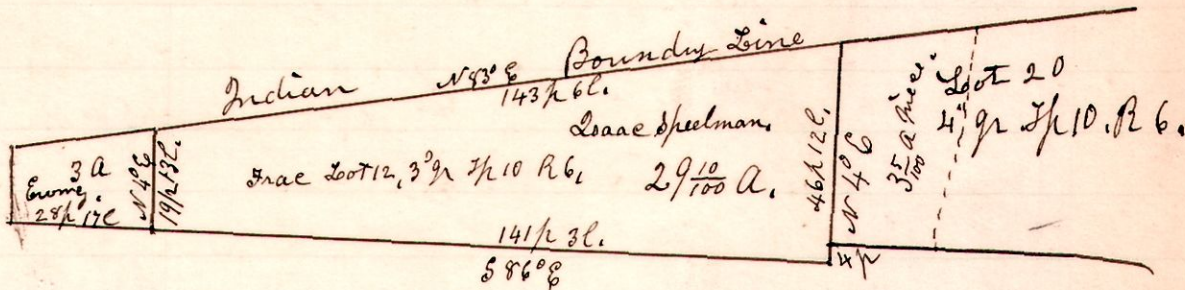 Indian N 83° E Boundry Line
143p 6l.
Isaac Speelman.
3 A
28p 17l
N 4° E
19p 13l.
Frac Lot 12, 3d qr Tp 10 R 6, 29 10/100 A.
46p 12l.
N 4° E
3 5/100 a
Lot 20
4th qr Tp 10. R 6.
141p 3l.
S 86° E
4p